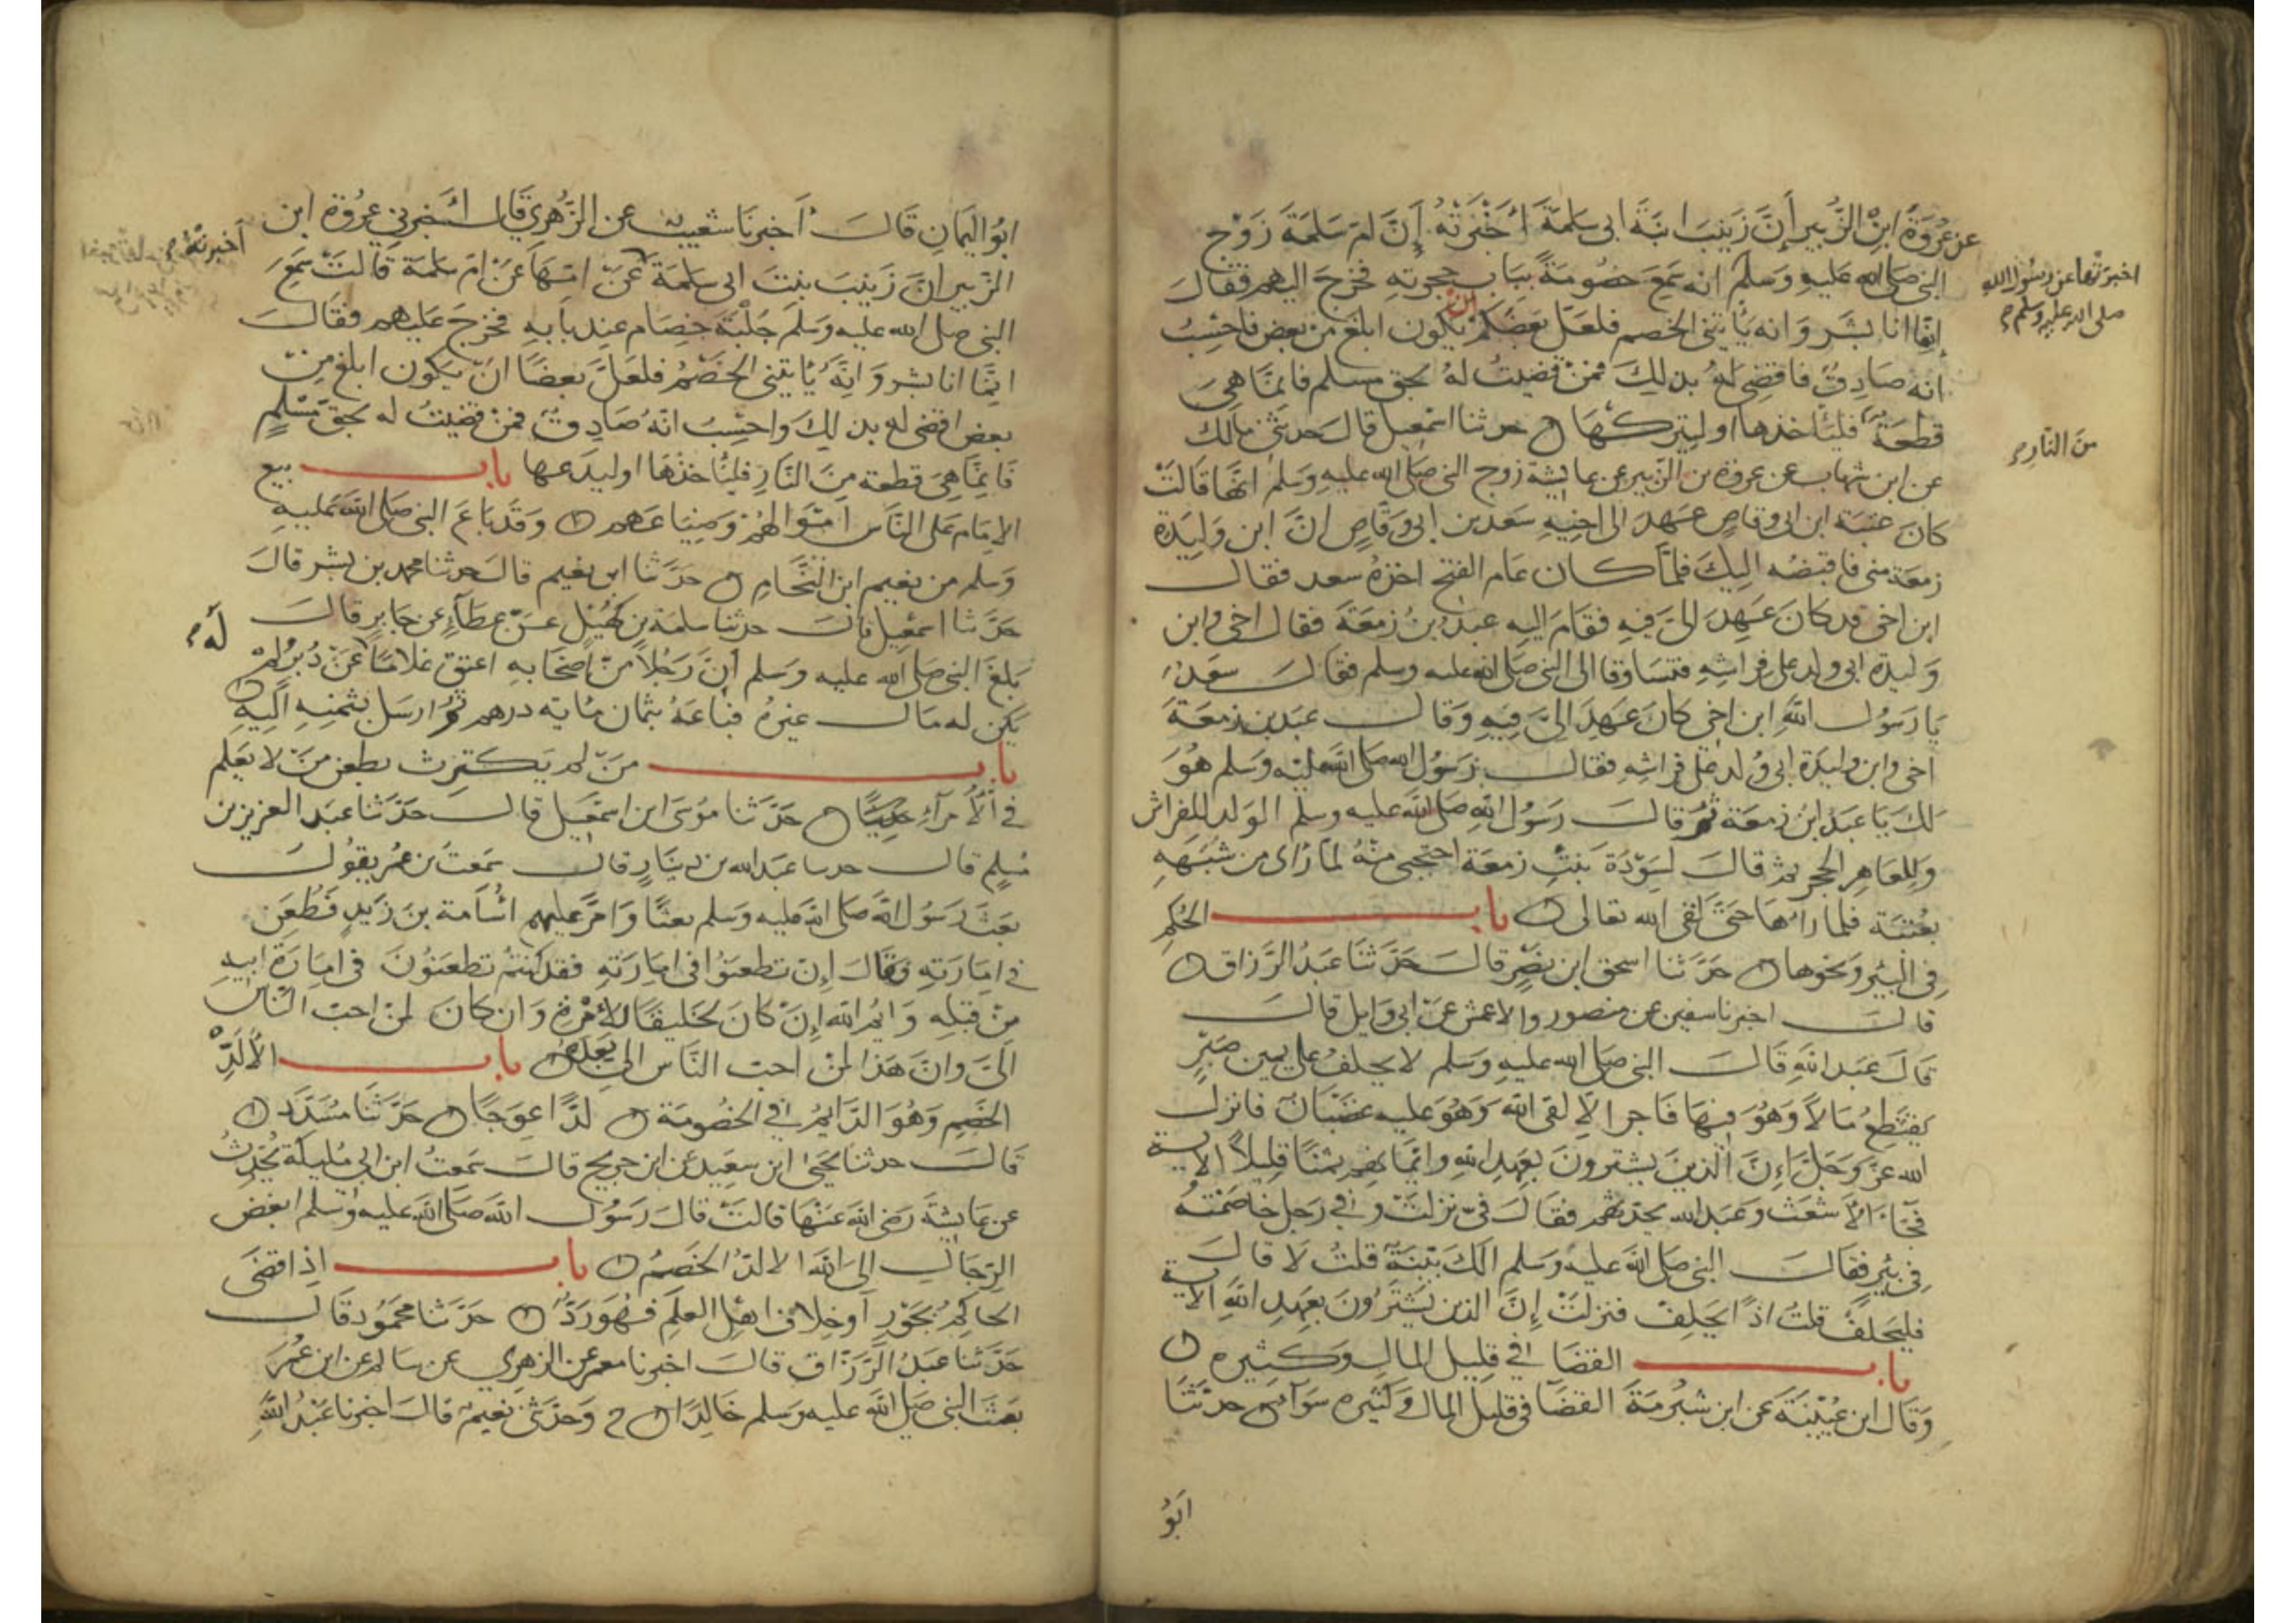 عن عُروَةَ ابنِ الزُّبير أنَّ زَينبَ ابنَةَ ابي سَلمَةَ اَخبَرَتْهُ إنَّ امَّ سَلمَةَ زَوْج
النبي صَلى الله عليهِ وَسَلّمَ انه سَمعَ خصُومَةً ببَابِ حجرتِهِ فخرَجَ اليهم فقالَ
اخبرَتهَا عن رسُول الله
صلى الله عليه وسلم
إنّما انا بشَر وَانه يَأتيني الخصم فلعَلّ بَعضَكم ان يكون ابلغ من بعض فاحْسِبُ
انهُ صَادِقٌ فاقضِي لهُ بذلِكَ فمَنْ قضَيتُ لهُ بحق مسلم فانمّا هِيَ
قطعَةٌ فليَأخذهَا او ليَتركهَا حدثنا اسْمعيل قالَ حَدثني مالك
منَ النَّار
عن ابن شهاب عن عروة بن الزبير عن عايشة زوج النبي صَلى الله عليهِ وَسلم انهّا قالتْ
كانَ عتبَة ابن ابي وقاصٍ عَهِدَ الى اخيهِ سَعد بن ابي وَقّاصٍ انَّ ابن وَليدَة
زمعَة مني فاقبضهُ اليكَ فلمّا كان عَام الفتح اخذهُ سعد فقالَ
ابن اخي قد كانَ عَهِدَ اليَّ فيهِ فقامَ اليهِ عبدُ بنُ زمْعَة فقالَ اخي وابن
وَليدَة ابي ولد على فِراشِهِ فتسَاوَقا الى النبي صَلى الله عليه وسلم فقالَ سَعْدٌ
يَا رَسُول اللهِ ابن اخي كانَ عَهِدَ اليَّ فيهِ وَقالَ عَبدُ بن زمعَةَ
اخي وابن وليدَة ابي وُلد على فراشِهِ فقالَ رَسُول الله صَلى الله عليه وَسلم هُوَ
لكَ يَا عَبدُ ابنُ زمعَة ثم قالَ رَسُول اللهِ صَلى الله عليه وسلم الوَلد للفراش
وَللعَاهِر الحجر ثم قالَ لسَوْدَةَ بنتِ زمعَة احتجبي منهُ لما رَاى من شَبَهِهِ
بعُتبَة فلما رآهَا حَتَّى لقى الله تعالى باب الحُكم
فِي البئر وَنحوها حَدَّثنا اسحق ابن نَصْرٍ قالَ حَدَّثنَا عَبدُ الرَّزاق
قالَ اخبرنا سفين عن منصور والاعمش عن ابي وَايل قالَ
قالَ عَبد اللهِ قالَ النبي صَلى الله عليهِ وَسلم لا يحلفُ على يمين صَبْرٍ
يَقتطِعُ مَالاً وَهُوَ فيهَا فاجر الاّ لقى الله وَهُوَ عليه غضبَان فانزل
الله عزَّ وَجَلَّ إنَّ الّذينَ يشترونَ بعَهدِ اللهِ وايمَانهم ثمنًا قليلاً الاية
فجَاءَ الأَشعَث وَعَبد الله يحدثهم فقالَ فيَّ نزلتْ وَفي رَجل خاصَمْتهُ
فِي بئرٍ فقالَ النبي صَلى الله عليه وَسلم الكَ بيّنَةٌ قلتُ لَا قالَ
فليَحلِفْ قلتُ اذًا يحلِفَ فنزلتْ إنَّ الذين يَشترُونَ بعَهدِ اللهِ الاية
باب القضَا في قليل المالِ وكثيره
وَقالَ ابن عُيَيْنَةَ عن ابن شبُرمَةَ القضَا في قليل المال وَكثيره سَوَآء حدثنَا
ابُو
ابُو اليمَانِ قَالَ أخبرنَا شعيبٌ عن الزُّهري قَالَ اخبرني عروُة ابن
الزبير انَّ زَينَبَ بنتَ ابي سَلمَة عَنْ امّهَا عَنْ امّ سَلمَة قَالتْ سَمِعَ
أخبرتْهُ
النبي صلى الله عليه وَسلمَ جَلبَةَ خِصَام عند بَابه فخرَجَ عَليهم فقالَ
انِّمَا انا بشر وَانَّهُ يَأتيني الخَصْمُ فلعَلَّ بَعضًا انْ يَكون ابلغ مِنْ
بعض اقضي له بذلك وَاحسِبُ انّهُ صَادِقٌ فمَنْ قضيتُ له بحقّ مُسْلمٍ
فانمّا هِيَ قطعة مِنَ النَّارِ فليأخذهَا او ليدَعهَا باب بيع
الإمَام عَلى النَّاس امْوَالهُمْ وَضِيَاعَهم وَقد بَاعَ النبي صَلى الله عَليهِ
وَسَلم من نعَيم ابن النَّحَّام حَدَّثنا ابن نُميرٍ قالَ حدثنا محمد بن بشر قالَ
حَدَّثنا اسمَعيل قالَ حدثنا سلمَة بن كهَيْل عَن عَطَاءٍ عن جَابرٍ قالَ
بَلغَ النبي صَلى الله عليه وَسَلم اَنَّ رَجُلاً منْ أصحَابهِ اعتق غلامًا عَنْ دُبرُ لمْ
لَهُ
يَكن له مَال غيرهُ فبَاعَهُ بثمان مَائة درهم ثم ارسَل بثمَنِهِ الَيهِ
باب مَنْ لم يَكترث بطعن مَنْ لا يَعلم
في الأُمرَآءِ حديثًا حَدَّثنا مُوسَى ابن اسمَعيل قالَ حَدّثنا عبَد العزيز بن
مُسلِم قالَ حدثنا عبَد الله بن دينَارٍ قالَ سَمعتُ بن عُمر يقوُلَ
بَعَث رَسُول الله صَلى الله عليه وَسلم بعثًا وَامّرَ عليهم اُسَامة بنَ زَيدٍ فَطُعِنَ
في امَارَتِهِ وقالَ إن تطعَنوُا في امَارَتِهِ فقد كنتمُ تطعَنوُنَ في امَارَةِ ابيهِ
منْ قبَلِهِ وَايمُ الله إنْ كانَ لخَليقًا للإمْرَةِ وَان كانَ لمنْ احب النَّاس
الَيَّ وانَّ هَذا لمنْ احب النَّاس اليَّ بَعدَهُ باب الأَلَدِّ
الخَصِمِ وَهُوَ الدَّايمُ في الخصُومَة لدًّا عِوَجًا حَدَّثنَا مسَدَّد
قَالَ حدثنا يحَيى ابن سعَيدٍ عَن ابن جريج قالَ سَمعتُ ابن ابي مُليكة يُحَدِّثُ
عن عَايشَة رَضي الله عَنهَا قالتْ قالَ رَسُول الله صَلى الله عليه وَسلم ابغض
الرّجَالِ الى الله الالدُّ الخَصِمُ باب اذا قضَى
الحَاكمُ بجَوْرٍ أو خِلافِ اهْل العِلم فهُوَ رَدٌّ حَدَّثنا محَمُود قَالَ
حَدّثنا عبَدُ الرّزَّاق قالَ اخبرنا معمر عن الزهري عن سَالم عن ابن عُمَرَ
بعَثَ النبي صَلى الله عليه وَسَلم خَالِدًا ح وَحَدّثني نُعيمٌ قالَ اخبرنا عَبْدُ اللهِ